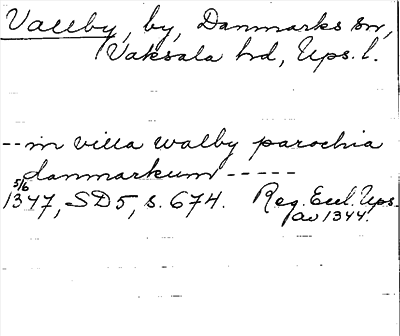 Vallby, by, Danmarks sn,
Vaksala hd, Ups. l.
-- in villa walby parochia
danmarkum -----
5/6
1347, SD5, s. 674. Reg. Eccl. Ups.
av 1344.